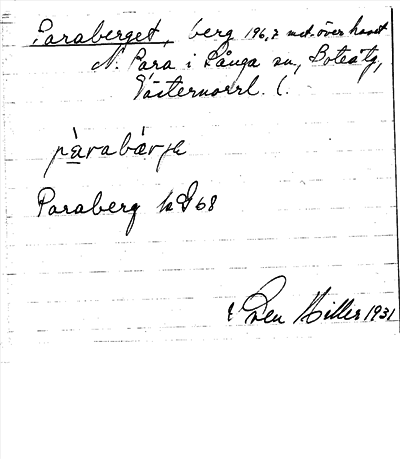 Paraberget, berg 196,2 met. över havet
N. Para i Långa sn, Boteåtg,
Västernorrl. l.
pàrabärje
Paraberg ka G 68
Sven Hiller 1931